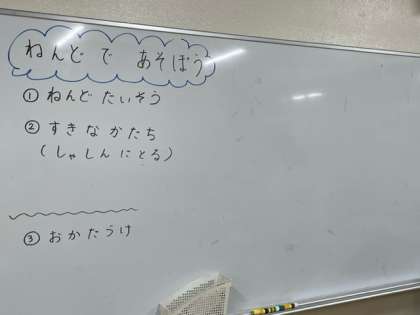 ねんど で あそぼう
① ねんど たいそう
② すきなかたち
(しゃしんにとる)
③ おかたづけ